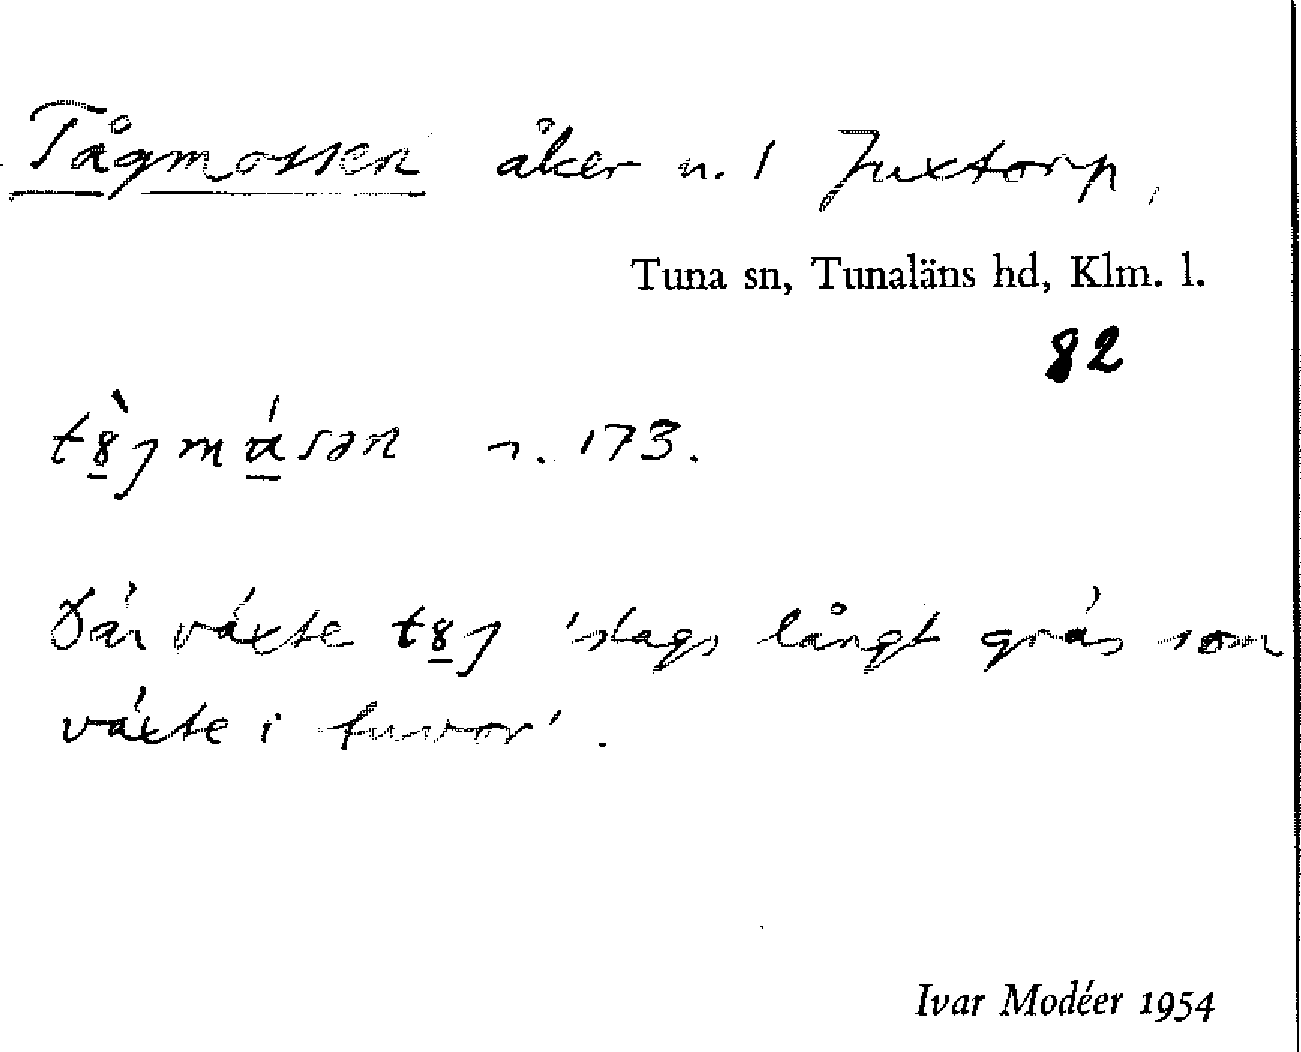 Tågmossen åker n. 1 Juxtorp,
Tuna sn, Tunaläns hd, Klm. l.
82
n. 173.
Där växte 'slags långt gräs som
växte i tuvor'.
Ivar Modéer 1954